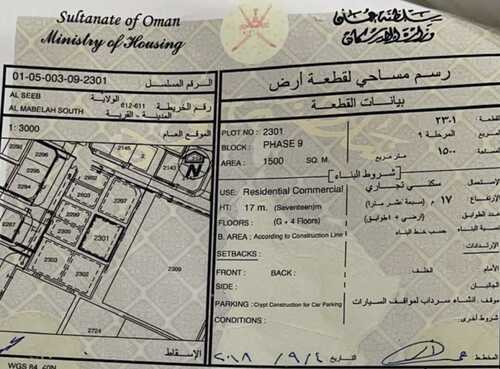 Sultanate of Oman
Ministry of Housing
سلطنة عمان
وزارة الإسكان
01-05-003-09-2301
الرقم المسلسل
AL SEEB
الولاية
612-611
رقم الخريطة
AL MABELAH SOUTH
المدينة - القرية
1: 3000
الموقع العام
رسم مساحي لقطعة أرض
بيانات القطعة
PLOT NO : 2301
٢٣٠١
BLOCK : PHASE 9
المرحلة ٩
AREA : 1500 SQ. M
١٥٠٠ متر مربع
شروط البناء
USE: Residential Commercial
سكني تجاري
الاستعمال
HT: 17 m. (Seventeen)m
١٧ م (سبعة عشر مترا)
FLOORS : (G + 4 Floors)
(أرضي + ٤ طوابق)
B. AREA : According to Construction Line
حسب خط البناء
SETBACKS :
الإرتدادات
FRONT : BACK :
الخلف
الأمام
SIDE :
الجانبان
PARKING : Crypt Construction for Car Parking
إنشاء سرداب لمواقف السيارات
CONDITIONS :
شروط أخرى
2145
2143
2296
2295
2294
2297
2298
2301
2309
2724
N
الإسقاط
WGS 84, 40N
٢٠١٨ / ٩ / ٤
التاريخ
المخطط